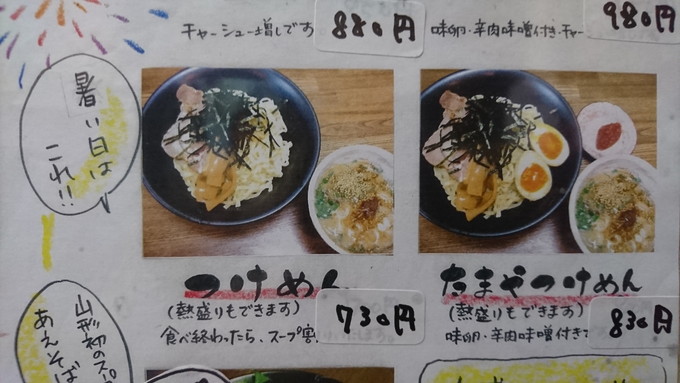 チャーシュー増しです
880円
味卵・辛肉味噌付き・チャー
980円
暑い日は
これ!!
つけめん
(熱盛りもできます)
食べ終わったら、スープ割
730円
たまやつけめん
(熱盛りもできます)
味卵・辛肉味噌付きで
830円
山形初のスープ
あえそば